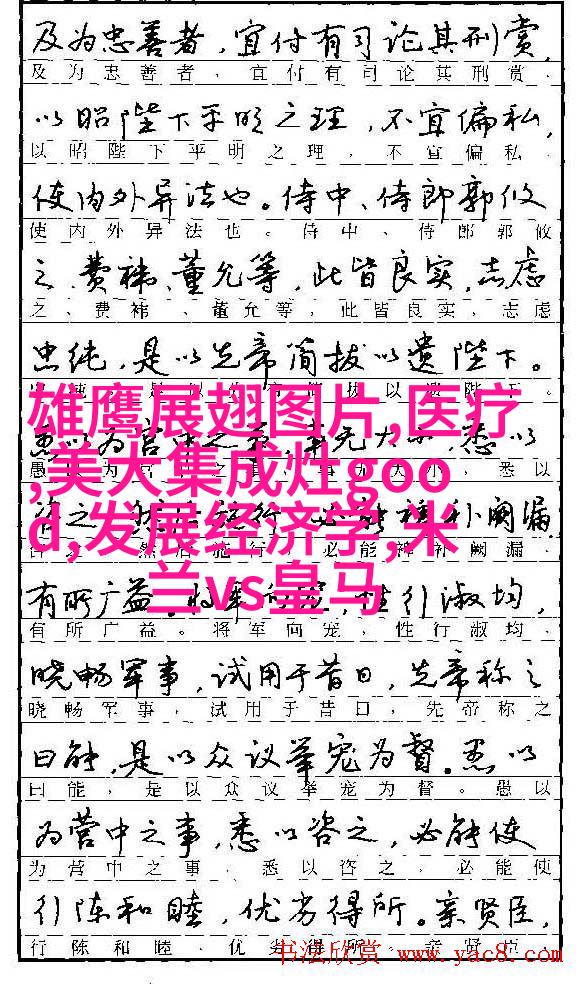 及为忠善者,宜付有司论其刑赏,
及为忠善者,宜付有司论其刑赏,
以昭陛下平明之理,不宜偏私,
以昭陛下平明之理,不宜偏私,
使内外异法也。侍中、侍郎郭攸
使内外异法也。侍中、侍郎郭攸
之、费祎、董允等,此皆良实,志虑
之、费祎、董允等,此皆良实,志虑
忠纯,是以先帝简拔以遗陛下。
雄鹰展翅图片,医疗
,美大集成灶goo
d,发展经济学,米
兰vs皇马
悉以
愚以为宫中之事,事无大小,悉以
补阙漏
然后施行,必能裨补阙漏,
有所广益。
有所广益。将军向宠,性行淑均,
晓畅军事,试用于昔日,先帝称之
晓畅军事,试用于昔日,先帝称之
曰能,是以众议举宠为督。愚以
曰能,是以众议举宠为督。愚以
为营中之事,悉以咨之,必能使
为营中之事,悉以咨之,必能使
行陈和睦,优劣得所。亲贤臣,
行陈和睦,优劣得所。亲贤臣,
书法欣赏 www.yac8.com